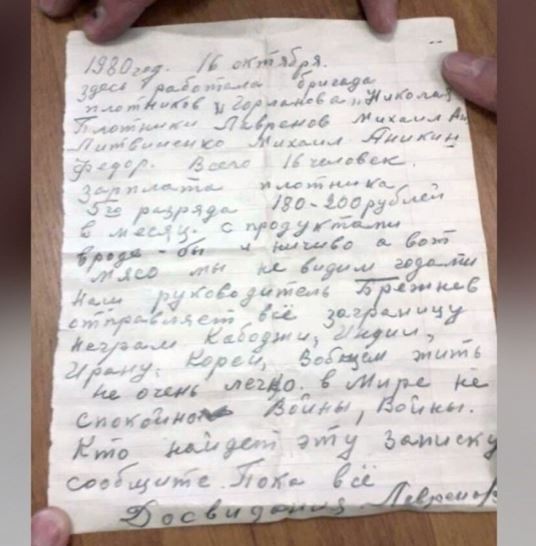 1980 год. 16 октября.
здесь работала бригада
плотников "Горланова" Николая
Плотники Лавренов Михаил Ан
Литвиненко Михаил Аникин
Федор. Всего 16 человек.
Зарплата плотника
5го разряда 180-200 рублей
в месяц. с продуктами
вроде-бы и ничиво а вот
мясо мы не видим годами
Наш руководитель Брежнев
отправляет всё заграницу
неграм Кабоджи, Индии,
Ирану, Кореи, Вобщем жить
не очень легко. в Мире не
спокойно Войны, Войны.
Кто найдет эту записку
сообщите. Пока всё
Досвидания. Лавренов